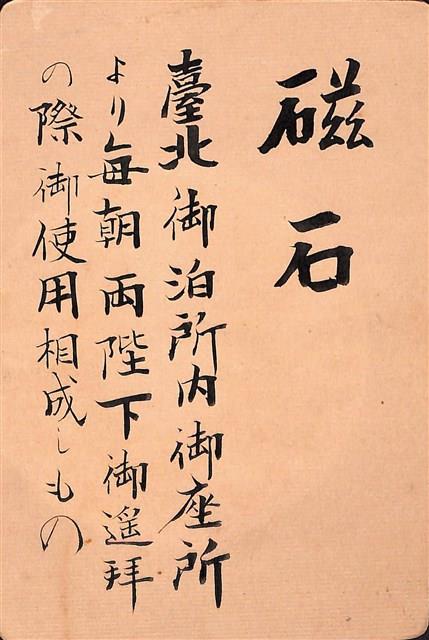 磁石
臺北御泊所内御座所
より毎朝両陛下御遥拝
の際御使用相成しもの